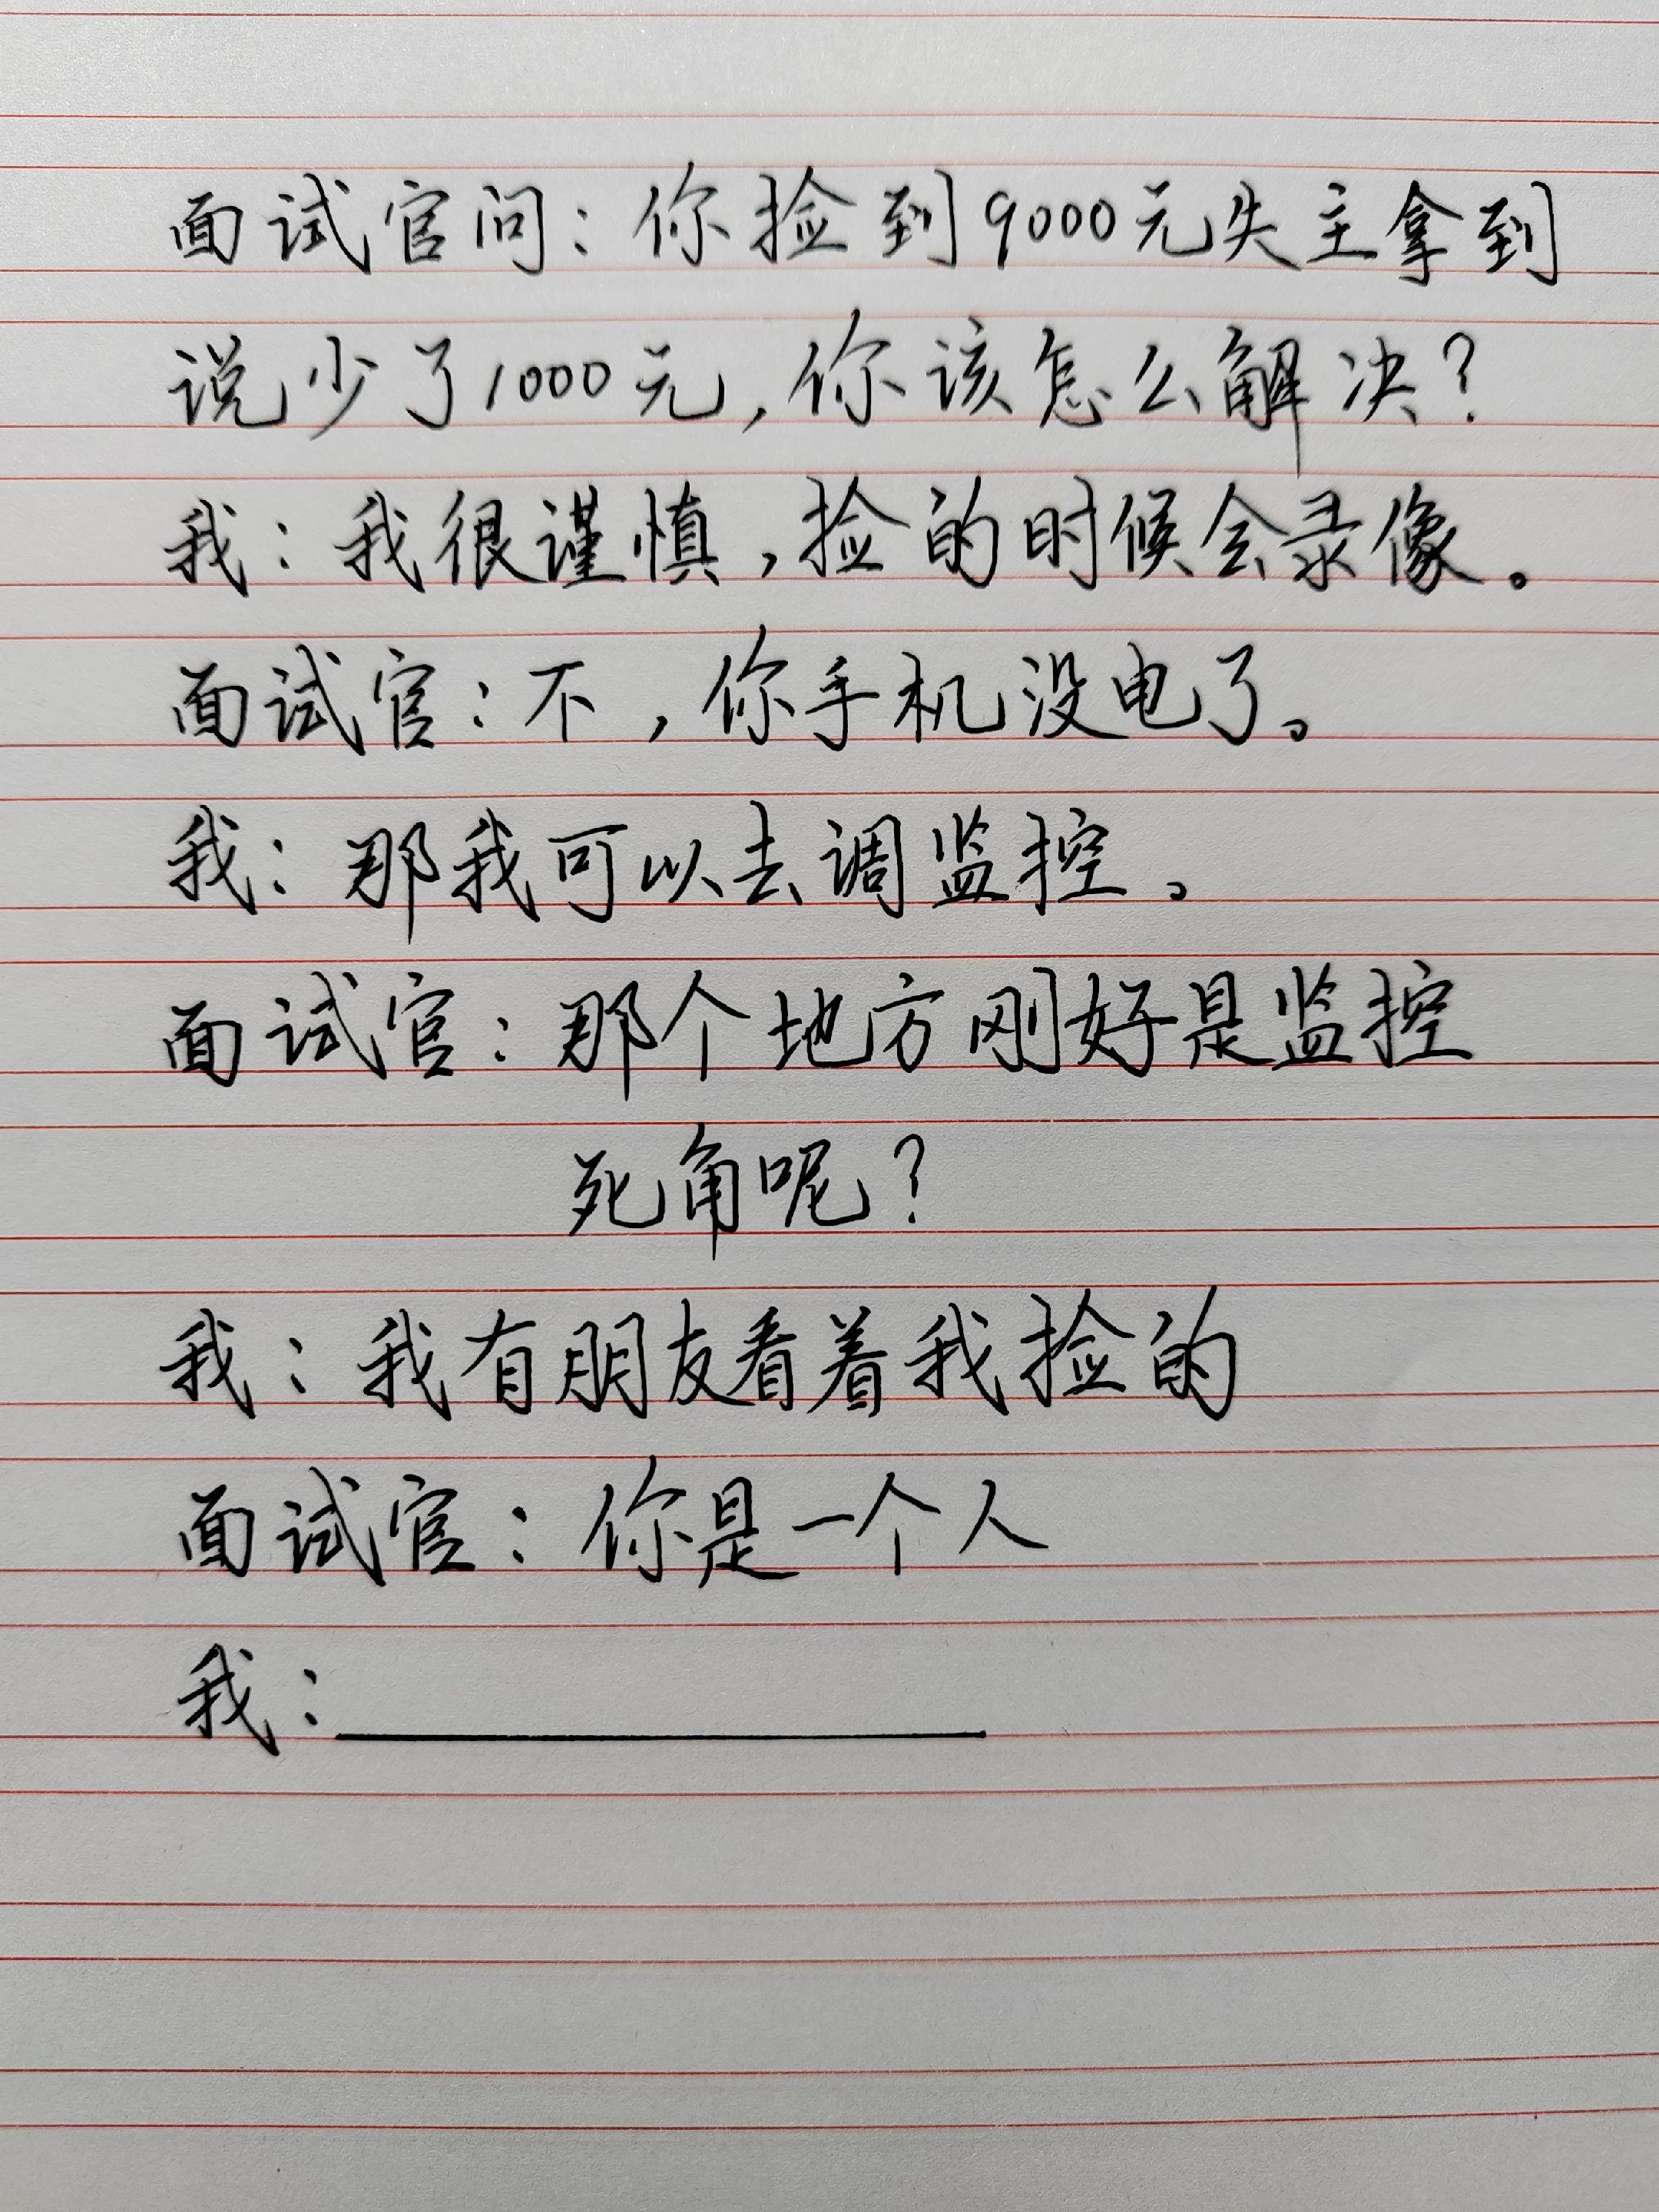 面试官问：你捡到9000元失主拿到
说少了1000元，你该怎么解决？
我：我很谨慎，捡的时候会录像。
面试官：不，你手机没电了。
我：那我可以去调监控。
面试官：那个地方刚好是监控
死角呢？
我：我有朋友看着我捡的
面试官：你是一个人
我：